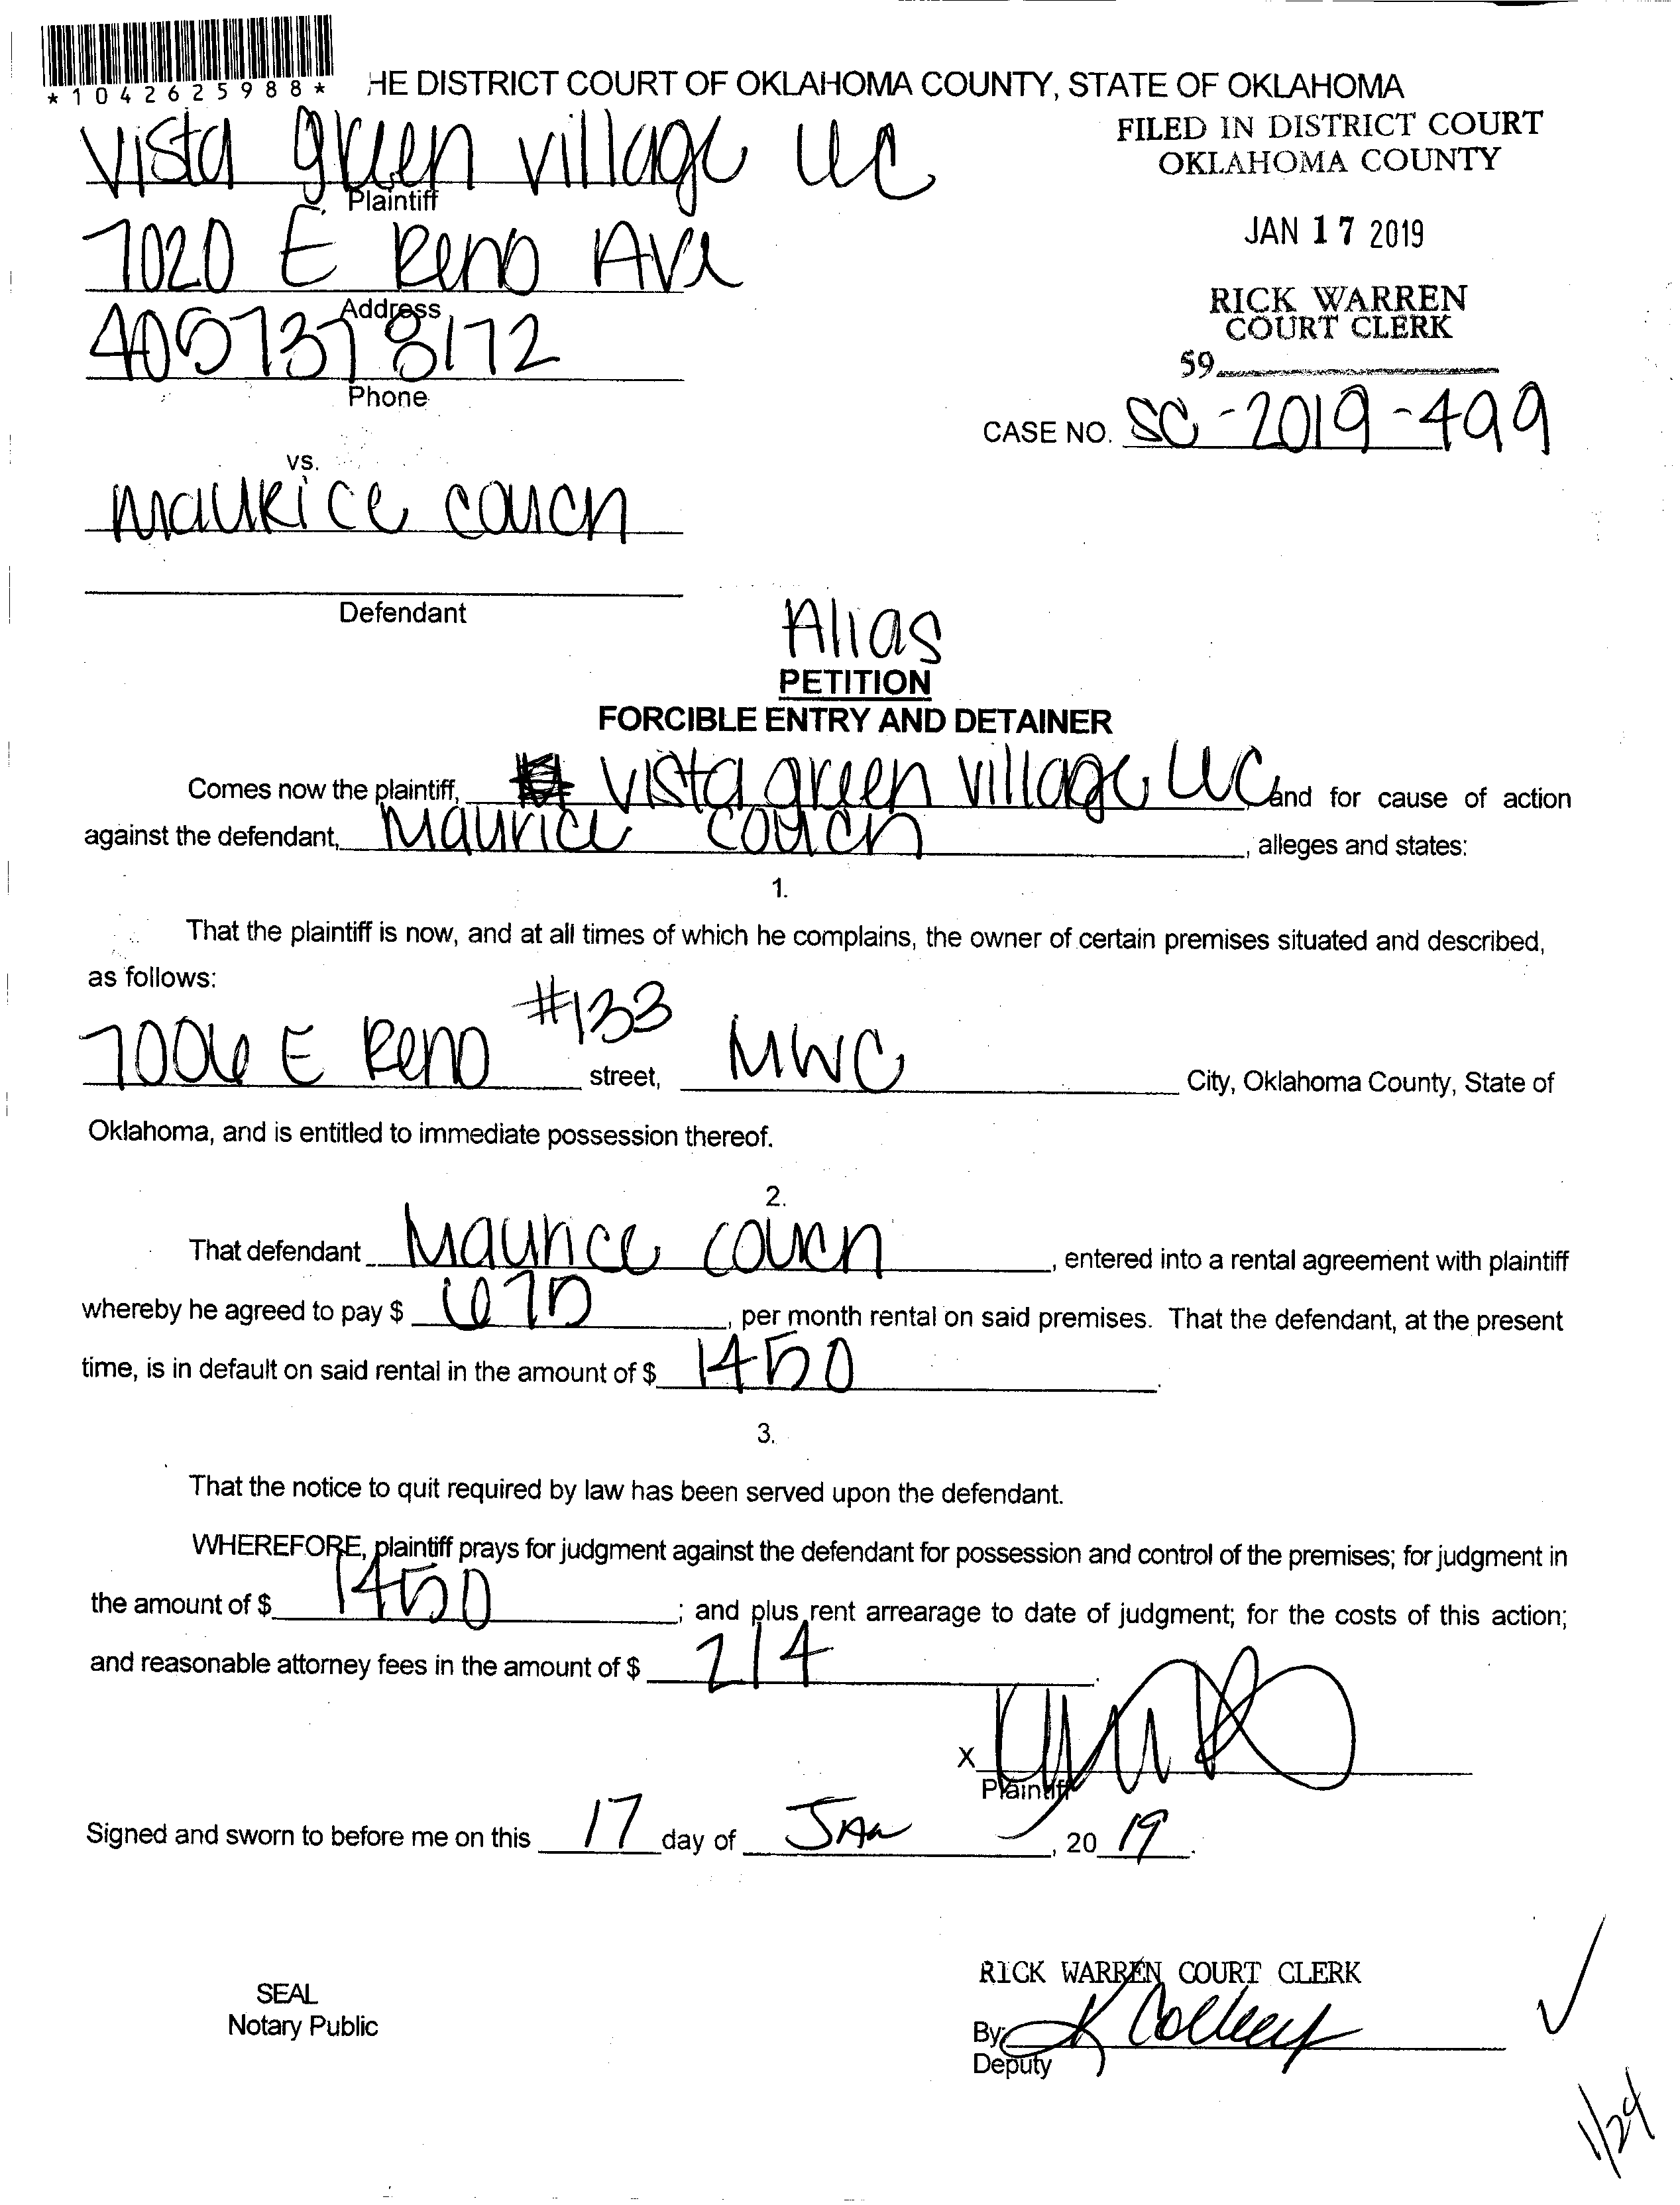 *1042625988*
HE DISTRICT COURT OF OKLAHOMA COUNTY, STATE OF OKLAHOMA
Vista green village LLC
Plaintiff
FILED IN DISTRICT COURT
OKLAHOMA COUNTY
JAN 17 2019
RICK WARREN
COURT CLERK
59
7020 E Reno Ave
Address
405 737 8172
Phone
CASE NO. SC-2019-499
vs.
Maurice Couch
Defendant
Alias
PETITION
FORCIBLE ENTRY AND DETAINER
Comes now the plaintiff, Vista green village LLC, and for cause of action
against the defendant, Maurice Couch, alleges and states:
1.
That the plaintiff is now, and at all times of which he complains, the owner of certain premises situated and described,
as follows:
7006 E Reno #133 street, MWC City, Oklahoma County, State of
Oklahoma, and is entitled to immediate possession thereof.
2.
That defendant Maurice Couch, entered into a rental agreement with plaintiff
whereby he agreed to pay $ 675, per month rental on said premises. That the defendant, at the present
time, is in default on said rental in the amount of $ 1450.
3.
That the notice to quit required by law has been served upon the defendant.
WHEREFORE, plaintiff prays for judgment against the defendant for possession and control of the premises; for judgment in
the amount of $ 1450; and plus rent arrearage to date of judgment; for the costs of this action;
and reasonable attorney fees in the amount of $ 214.
X
Plaintiff
Signed and sworn to before me on this 17 day of Jan, 20 19.
SEAL
Notary Public
RICK WARREN COURT CLERK
By:
Deputy
1/24